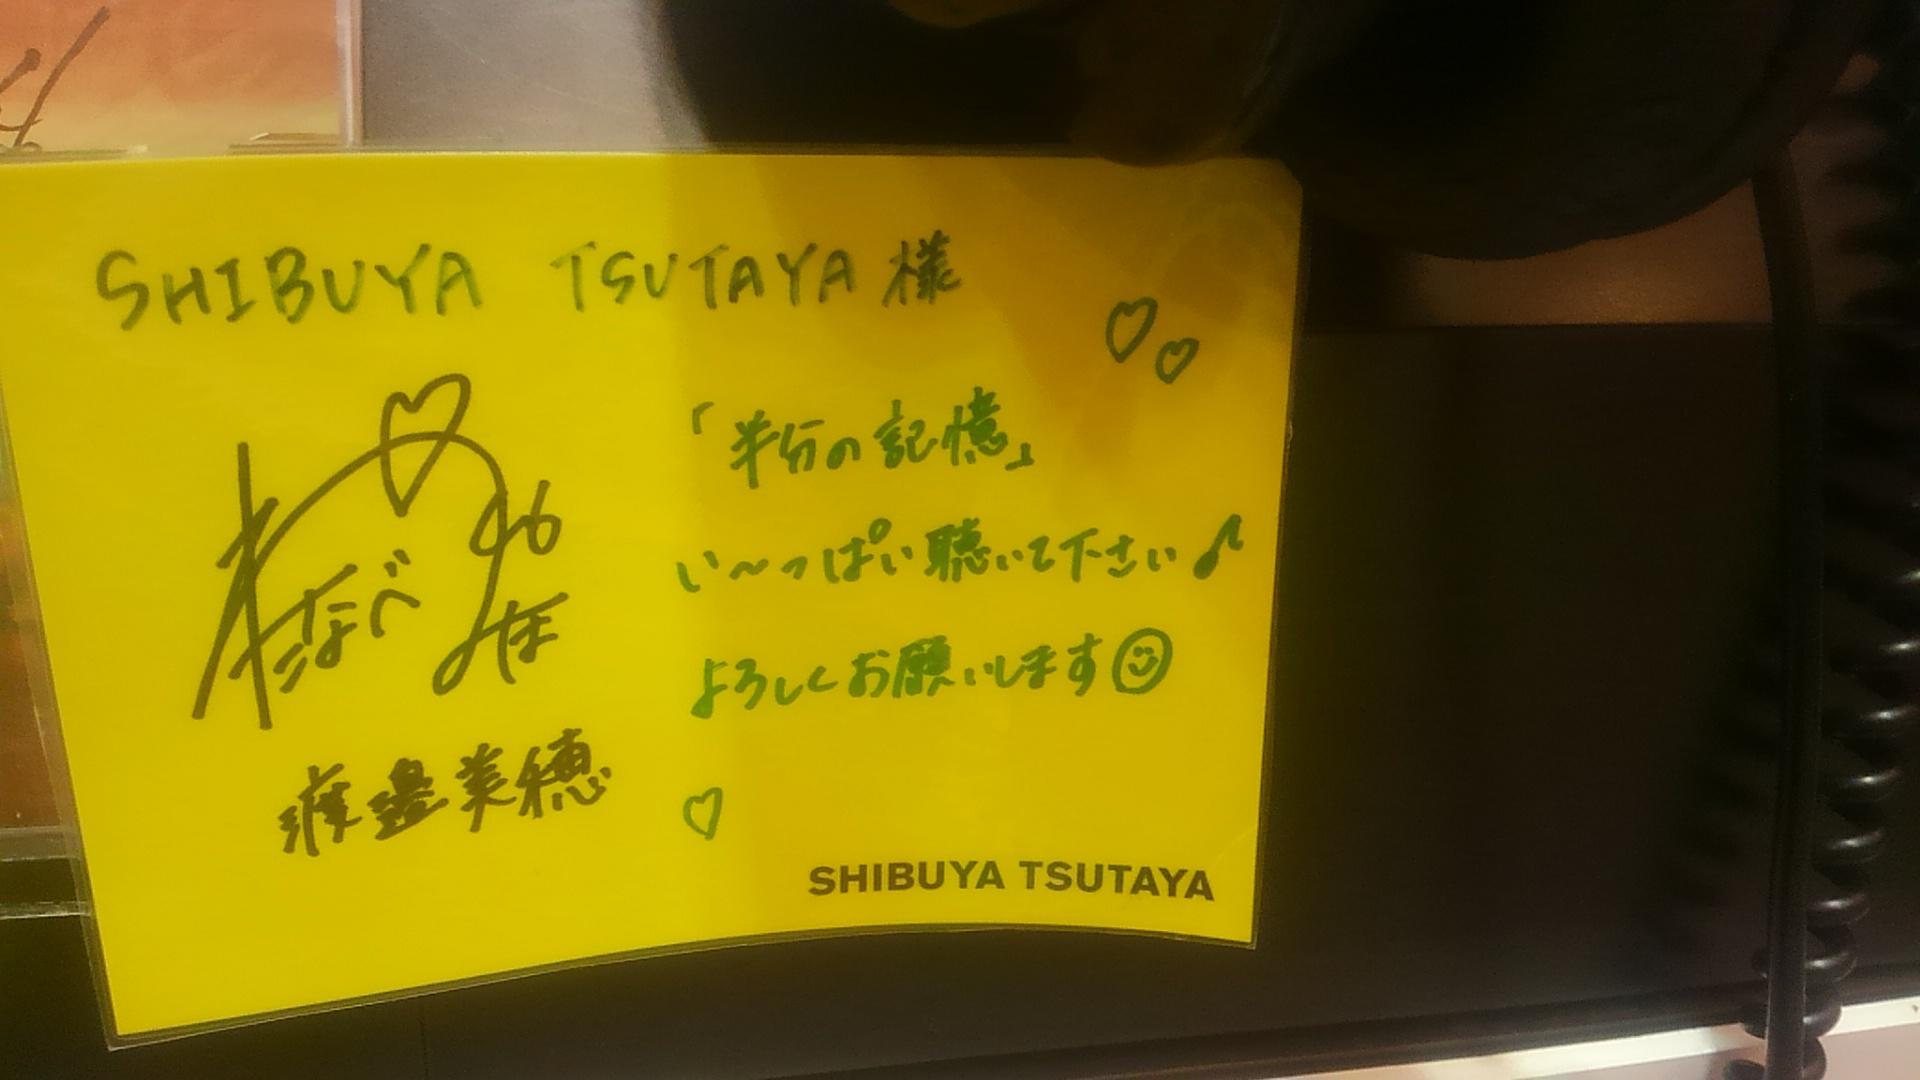 SHIBUYA TSUTAYA 様
「半分の記憶」
い〜っぱい聴いて下さい♪
よろしくお願いします☺
わたなべ
みほ
渡邉美穂
SHIBUYA TSUTAYA